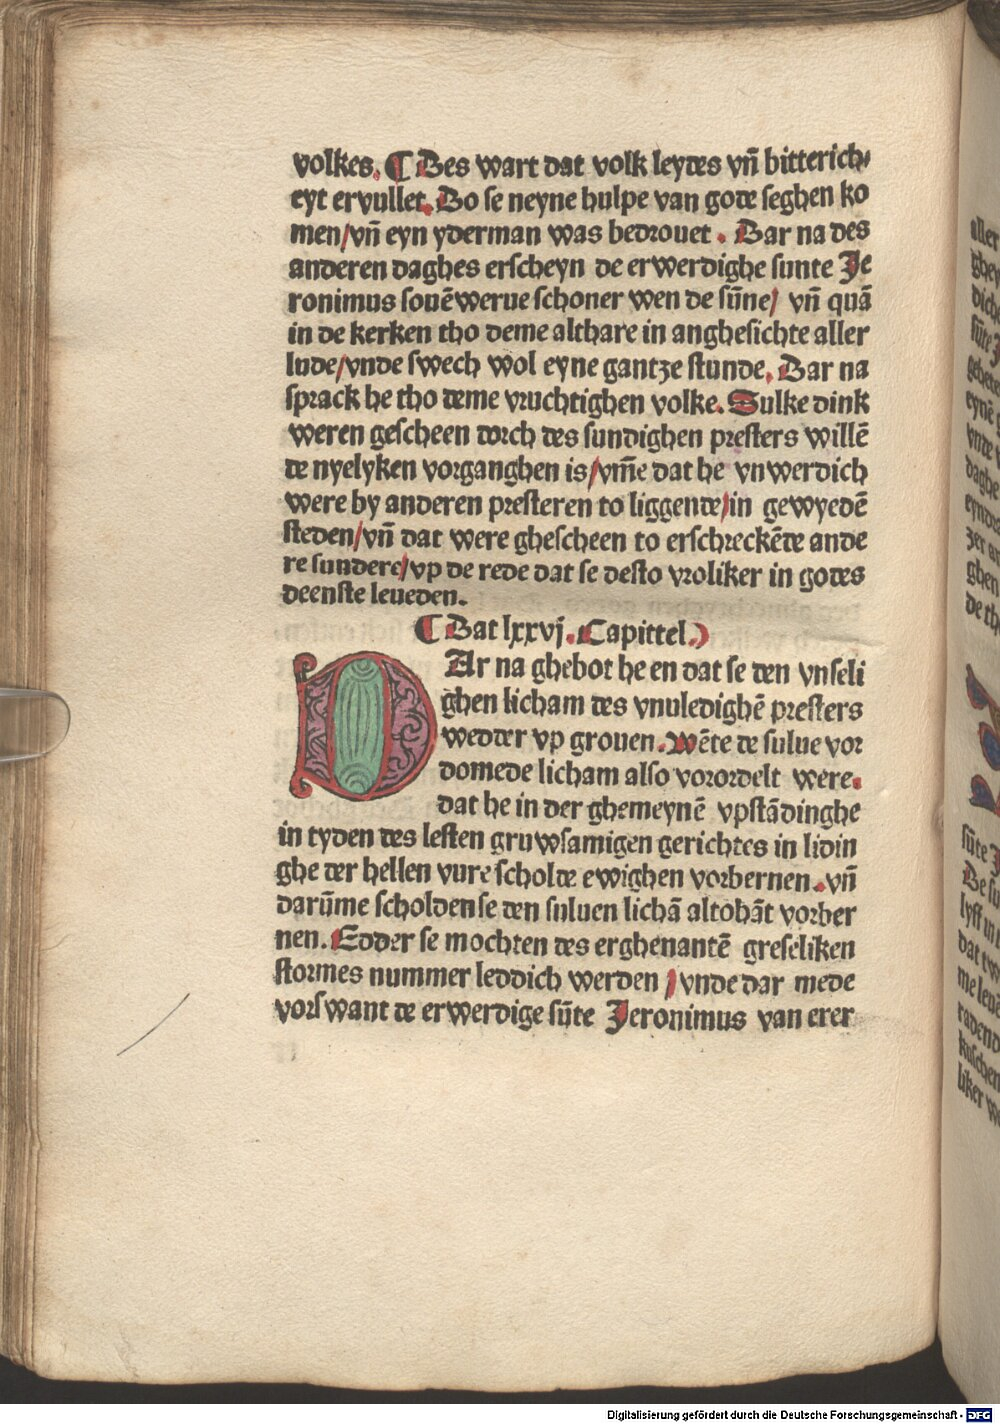 volkes. ¶ Des wart dat volk leydes vñ bitterich⸗
eyt ervullet. Do se neyne hulpe van gode seghen ko
men/vñ eyn yderman was bedrouet. Dar na des
anderen daghes erscheyn de erwerdighe sunte Je
ronimus souẽwerue schoner wen de sũne/ vñ quã
in de kerken tho deme althare in anghesichte aller
lude/vnde swech wol eyne gantze stunde. Dar na
sprack he tho deme vruchtighen volke. Sulke dink
weren gescheen dorch des sundighen presters willẽ
de nyelyken vorganghen is/vm̃e dat he vnwerdich
were by anderen presteren to liggende/in gewyedẽ
steden/vñ dat were ghescheen to erschreckẽde ande
re sundere/vp de rede dat se desto vroliker in godes
deenste leueden.
¶ Dat lxxvj. Capittel.
DAr na ghebot he en dat se den vnseli
ghen licham des vnuledighẽ presters
wedder vp grouen. Wẽte de sulue vor
domede licham also vorordelt were.
dat he in der ghemeynẽ vpstãdinghe
in tyden des lesten gruwsamigen gerichtes in lidin
ghe der hellen vure scholde ewighen vorbernen. vñ
darũme scholden se den suluen lichã altohãt vorber
nen. Edder se mochten des erghenantẽ greseliken
stormes nummer leddich werden/vnde dar mede
vorswant de erwerdige sũte Jeronimus van erer
Digitalisierung gefördert durch die Deutsche Forschungsgemeinschaft - DFG